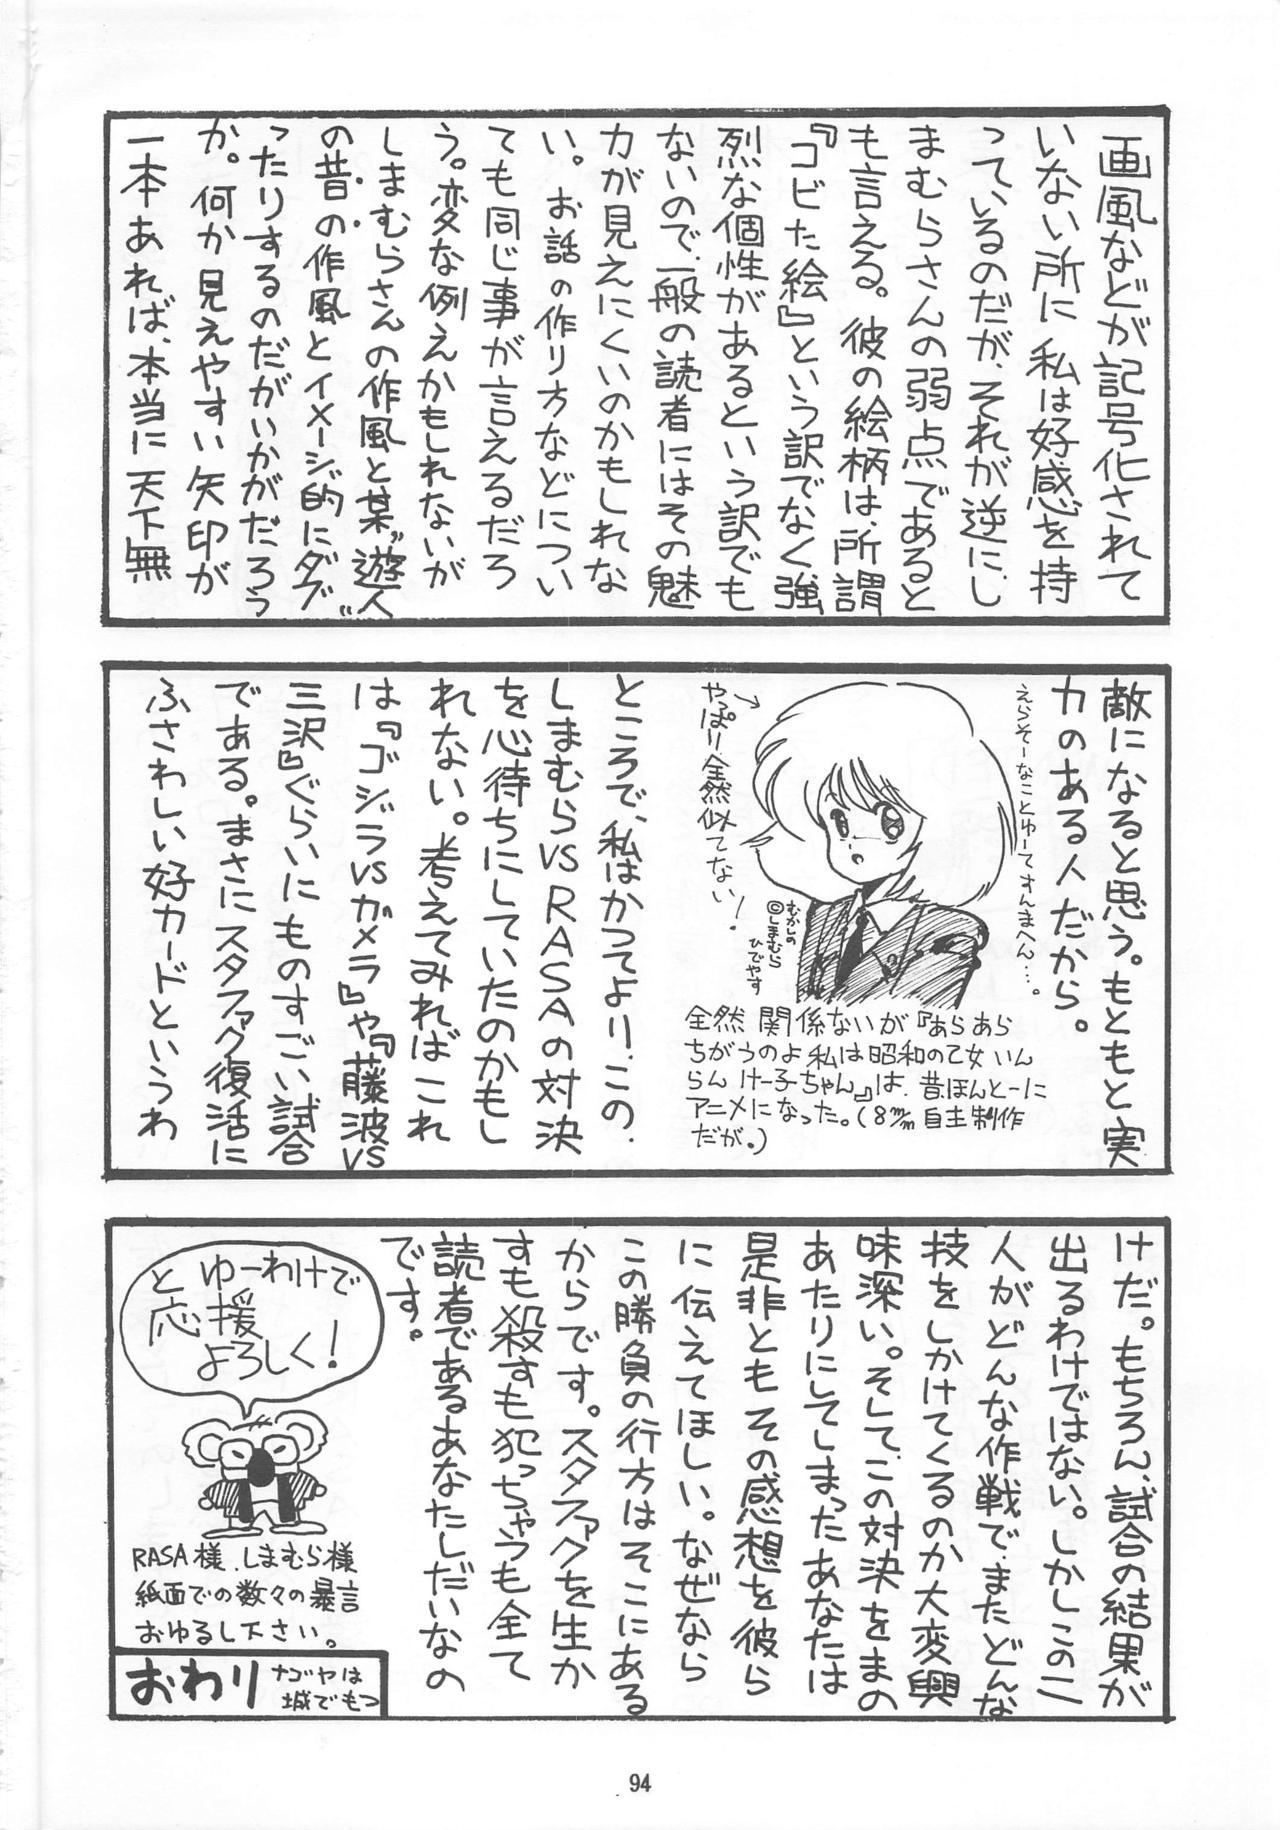 画風などが記号化されて
いない所に私は好感を持
っているのだが、それが逆にし
まむらさんの弱点であると
も言える。彼の絵柄は、所謂
『コビた絵』という訳でなく強
烈な個性があるという訳でも
ないので、一般の読者にはその魅
力が見えにくいのかもしれな
い。お話の作り方などについ
ても同じ事が言えるだろ
う。変な例えかもしれないが
しまむらさんの作風と某"遊人
の昔の作風とイメージ的にダブ
ったりするのだがいかがだろう
か。何か見えやすい矢印が
一本あれば、本当に天下無
敵になると思う。もともと実
力のある人だから。
えらそーなことゆーてすんまへん…。
やっぱり全然似てない!
むかしの
©しまむら
ひでやす
全然関係ないが『あらあら
ちがうのよ私は昭和の乙女いん
らんけー子ちゃん』は、昔ほんとーに
アニメになった。(8m/m自主制作
だが。)
ところで、私はかつてより、この
しまむらVSRASAの対決
を心待ちにしていたのかもし
れない。考えてみればこれ
は『ゴジラVSガメラ』や『藤波VS
三沢』ぐらいにものすごい試合
である。まさにスタファク復活に
ふさわしい好カードというわ
けだ。もちろん、試合の結果が
出るわけではない。しかしこの二
人がどんな作戦で、またどんな
技をしかけてくるのか大変興
味深い。そして、この対決をまの
あたりにしてしまったあなたは
是非ともその感想を彼ら
に伝えてほしい。なぜなら
この勝負の行方はそこにある
からです。スタファクを生か
すも殺すも犯っちゃうも全て
読者であるあなたしだいなの
です。
ゆーわけで
と応援
よろしく!
RASA様、しまむら様
紙面での数々の暴言
おゆるし下さい。
おわり
ナゴヤは
城でもつ
94